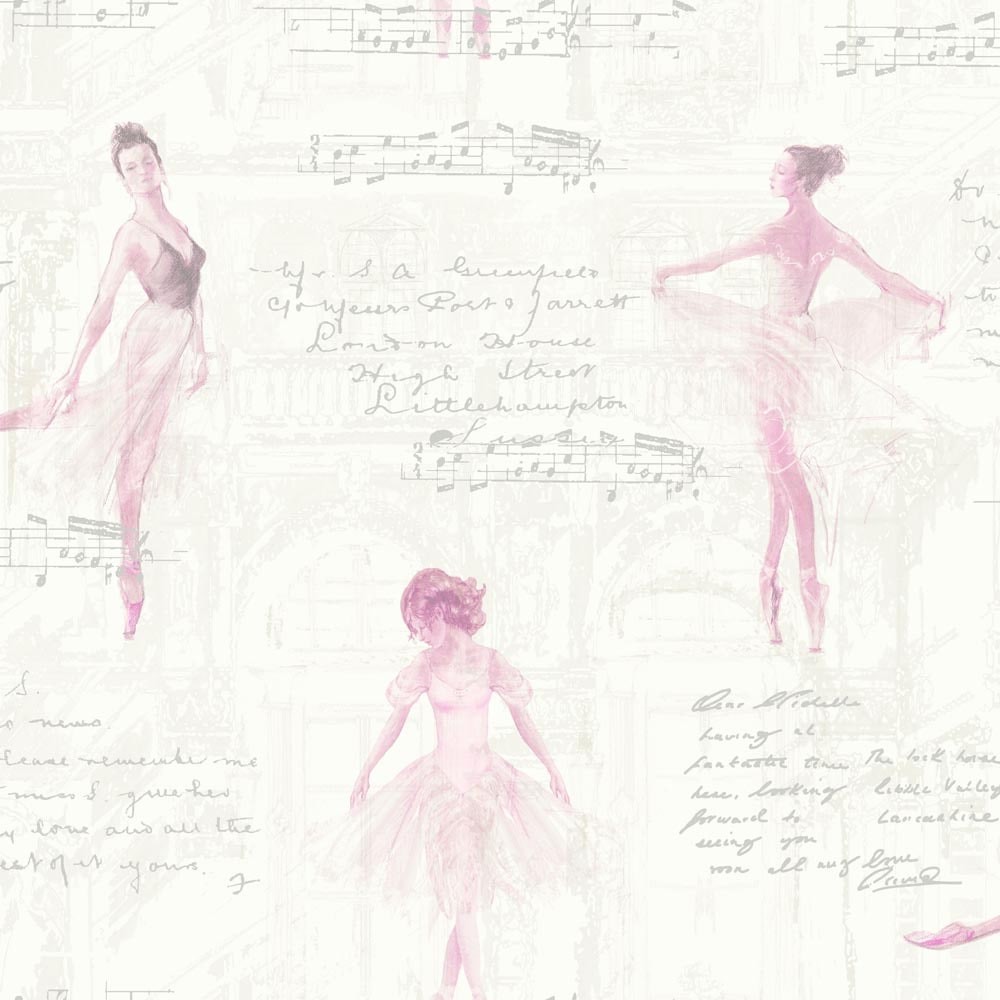 Mr. S A Greenfield
Yeurs Post & Jarrett
London House
High Street
Littlehampton
Sussex
S.
news.
Please remember me
miss S. give her
my love and all the
rest of it yours.
Dear Michelle
having at
fantastic time
here, looking
forward to
seeing you
soon all my love
The lock house
Valley
Lancashire